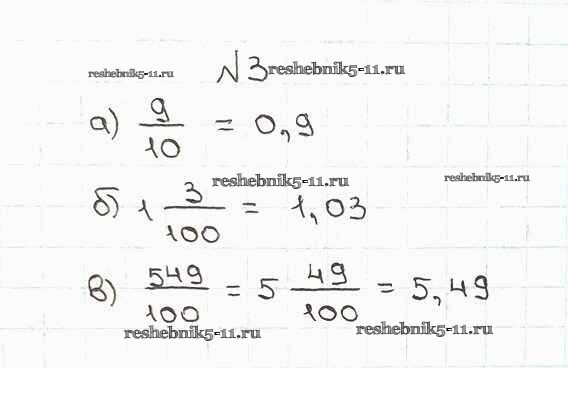 reshebnik5-11.ru
№3 reshebnik5-11.ru
а) 9/10 = 0,9
reshebnik5-11.ru
reshebnik5-11.ru
б) 1 3/100 = 1,03
в) 549/100 = 5 49/100 = 5,49
reshebnik5-11.ru
reshebnik5-11.ru